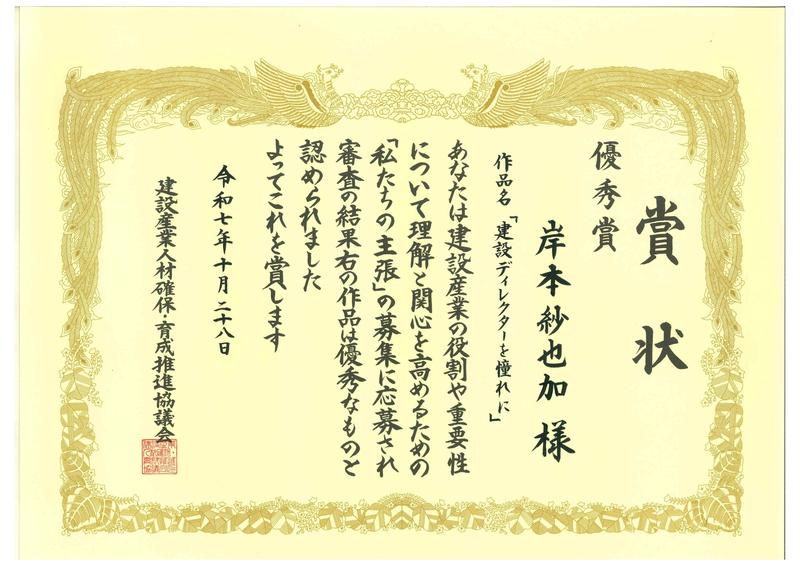 賞状
優秀賞
岸本紗也加 様
作品名「建設ディレクターを憧れに」
あなたは建設産業の役割や重要性
について理解と関心を高めるための
「私たちの主張」の募集に応募され
審査の結果右の作品は優秀なものと
認められました
よってこれを賞します
令和七年十月二十八日
建設産業人材確保・育成推進協議会